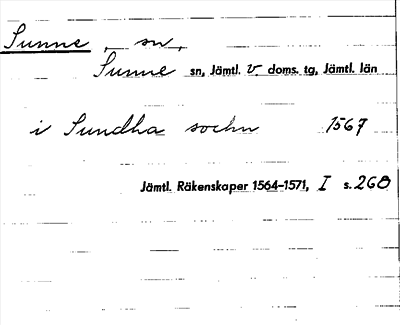 Sunne, sn,
Sunne sn, Jämtl. v. doms. tg, Jämtl. län
i Sundha sochn 1567
Jämtl. Räkenskaper 1564–1571, I s. 268